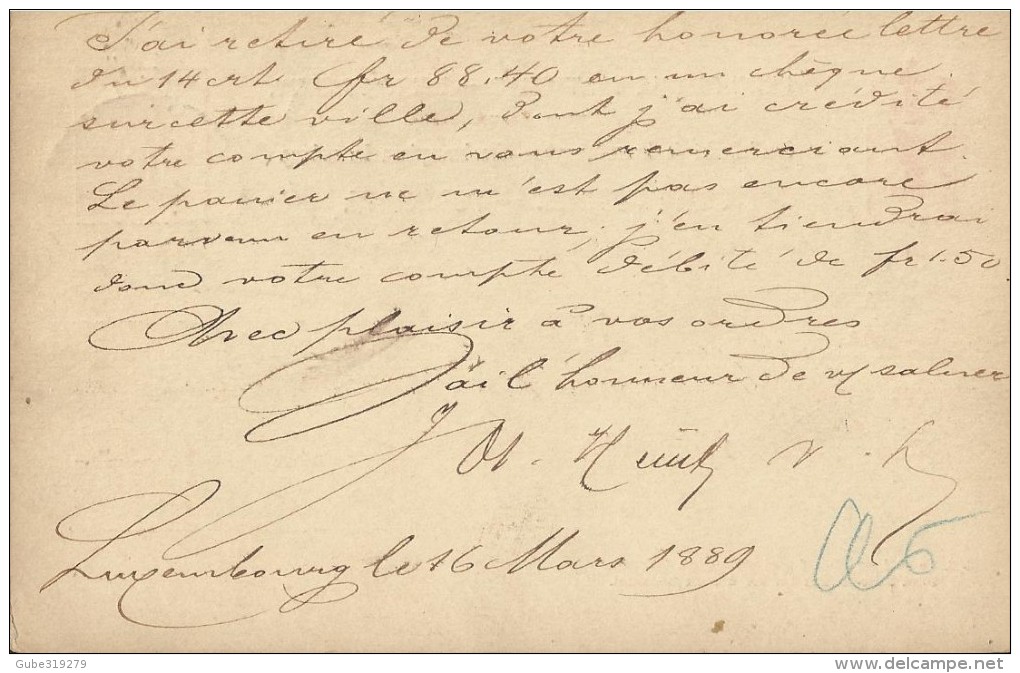 J'ai retiré de votre honorée lettre
du 14 crt fr 88.40 en un chèque
sur cette ville, dont j'ai crédité
votre compte en vous remerciant.
Le panier ne m'est pas encore
parvenu en retour; j'en tiendrai
donc votre compte débité de fr 1.50.
Avec plaisir à vos ordres
J'ai l'honneur de v/ saluer
Luxembourg le 16 Mars 1889
Gube319279
www.delcampe.net